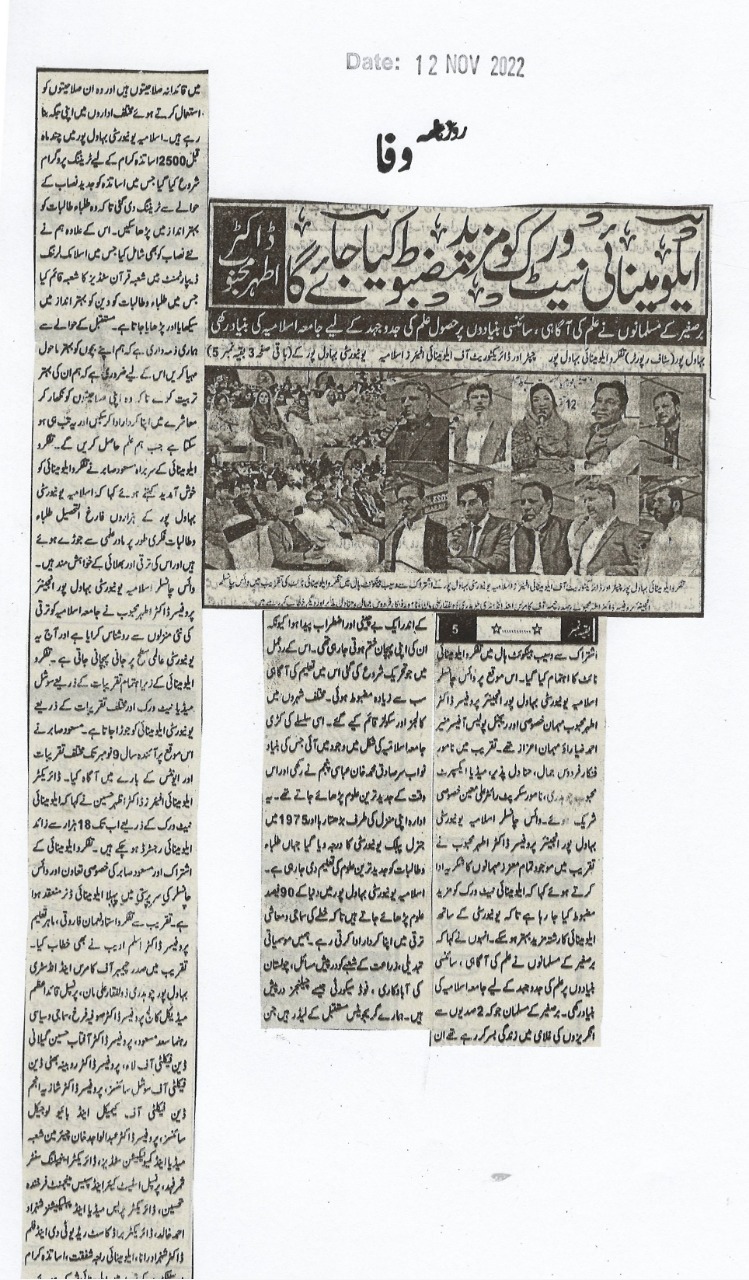 Date: 12 NOV 2022
روزنامہ وفا
ایلومینائی نیٹ ورک کو مزید مضبوط کیا جائے گا
ڈاکٹر
اطہر محبوب
برصغیر کے مسلمانوں نے علم کی آگاہی، سائنسی بنیادوں پر حصول علم کی جدوجہد کے لیے جامعہ اسلامیہ کی بنیاد رکھی
بہاول پور (سٹاف رپورٹر) تفکر و ایلومینائی بہاول پور چیپٹر اور ڈائریکٹوریٹ آف ایلومینائی افیئرز اسلامیہ یونیورسٹی بہاول پور کے (باقی صفحہ 3 بقیہ نمبر 5)
بقیہ نمبر 5
اشتراک سے وسیب بینکوئٹ ہال میں تفکر و ایلومینائی
نائٹ کا اہتمام کیا گیا۔ اس موقع پر وائس چانسلر
اسلامیہ یونیورسٹی بہاول پور انجینئر پروفیسر ڈاکٹر
اطہر محبوب مہمان خصوصی اور ریجنل پولیس آفیسر منیر
احمد ضیاء راؤ مہمان اعزاز تھے۔ تقریب میں نامور
فنکار فردوس جمال، حنا دل پذیر، میڈیا ایکسپرٹ
محبوب چوہدری، نامور سکرپٹ رائٹر علی معین خصوصی
شریک ہوئے۔ وائس چانسلر اسلامیہ یونیورسٹی
بہاول پور انجینئر پروفیسر ڈاکٹر اطہر محبوب نے
تقریب میں موجود تمام معزز مہمانوں کا شکریہ ادا
کرتے ہوئے کہا کہ ایلومینائی نیٹ ورک کو مزید
مضبوط کیا جا رہا ہے تاکہ یونیورسٹی کے ساتھ
ایلومینائی کا رشتہ مزید بہتر ہو سکے۔ انہوں نے کہا کہ
برصغیر کے مسلمانوں نے علم کی آگاہی، سائنسی
بنیادوں پر علم کی جدوجہد کے لیے جامعہ اسلامیہ کی
بنیاد رکھی۔ برصغیر کے مسلمان جو کہ 2 صدیوں سے
انگریزوں کی غلامی میں زندگی بسر کر رہے تھے ان
کے اندر ایک بے چینی اور اضطراب پیدا ہوا کیونکہ
ان کی اپنی پہچان ختم ہوتی جا رہی تھی۔ اس کے ردعمل
میں جو تحریک شروع کی گئی اس میں تعلیم کی آگاہی
سب سے زیادہ مضبوط ہوئی۔ مختلف شہروں میں
کالجز اور سکولز قائم کیے گئے۔ اسی سلسلے کی کڑی
جامعہ اسلامیہ کی شکل میں وجود میں آئی جس کی بنیاد
نواب سر صادق محمد خان عباسی پنجم نے رکھی اور اس
وقت کے جدید ترین علوم پڑھائے جاتے تھے۔ یہ
ادارہ اپنی منزل کی طرف بڑھتا رہا اور 1975 میں
جنرل پبلک یونیورسٹی کا درجہ دیا گیا جہاں طلباء
و طالبات کو جدید ترین علوم کی تعلیم دی جا رہی ہے۔
اسلامیہ یونیورسٹی بہاول پور میں دنیا کے 90 فیصد
علوم پڑھائے جاتے ہیں تاکہ خطے کی سماجی و معاشی
ترقی میں اپنا کردار ادا کرتی رہے۔ ہمیں موسمیاتی
تبدیلی، زراعت کے شعبے کو درپیش مسائل، چولستان
کی آباد کاری، فوڈ سیکورٹی جیسے چیلنجز درپیش
ہیں۔ ہمارے گریجویٹس مستقبل کے لیڈر ہیں جن
میں قائدانہ صلاحیتیں ہیں اور وہ ان صلاحیتوں کو
استعمال کرتے ہوئے مختلف اداروں میں اپنی جگہ بنا
رہے ہیں۔ اسلامیہ یونیورسٹی بہاول پور میں چند ماہ
قبل 2500 اساتذہ کرام کے لیے ٹریننگ پروگرام
شروع کیا گیا جس میں اساتذہ کو جدید نصاب کے
حوالے سے ٹریننگ دی گئی تاکہ وہ طلباء طالبات کو
بہتر انداز میں پڑھا سکیں۔ اس کے علاوہ ہم نے
نئے نصاب کو بھی شامل کیا جس میں اسلامک لرننگ
ڈیپارٹمنٹ میں شعبہ قرآن سٹڈیز کا شعبہ قائم کیا
جس میں طلباء و طالبات کو دین کو بہتر انداز میں
سیکھایا اور پڑھایا جاتا ہے۔ مستقبل کے حوالے سے
ہماری ذمہ داری ہے کہ ہم اپنے بچوں کو بہتر ماحول
مہیا کریں اس کے لیے ضروری ہے کہ ہم ان کی بہتر
تربیت کرے تاکہ وہ اپنی صلاحیتوں کو نکھار کر
معاشرے میں اپنا کردار ادا کر سکیں اور یہ تب ہی ہو
سکتا ہے جب ہم علم حاصل کریں گے۔ تفکر و
ایلومینائی کے سربراہ مسعود صابر نے تفکر و ایلومینائی کو
خوش آمدید کہتے ہوئے کہا کہ اسلامیہ یونیورسٹی
بہاول پور کے ہزاروں فارغ التحصیل طلباء
و طالبات فکری طور پر مادر علمی سے جڑے ہوئے
ہیں اور اس کی ترقی اور بھلائی کے خواہش مند ہیں۔
وائس چانسلر اسلامیہ یونیورسٹی بہاول پور انجینئر
پروفیسر ڈاکٹر اطہر محبوب نے جامعہ اسلامیہ کو ترقی
کی نئی منزلوں سے روشناس کرایا ہے اور آج یہ
یونیورسٹی عالمی سطح پر جانی پہچانی جاتی ہے۔ تفکر و
ایلومینائی کے زیر اہتمام تقریبات کے ذریعے سوشل
میڈیا نیٹ ورک اور مختلف تقریبات کے ذریعے
یونیورسٹی ایلومینائی کو جوڑا جاتا ہے۔ مسعود صابر نے
اس موقع پر آئندہ سال 9 نومبر تک مختلف تقریبات
اور ایونٹس کے بارے میں آگاہ کیا۔ ڈائریکٹر
ایلومینائی افیئرز ڈاکٹر اظہر حسین نے کہا کہ ایلومینائی
نیٹ ورک کے ذریعے اب تک 18 ہزار سے زائد
ایلومینائی رجسٹرڈ ہو چکے ہیں۔ تفکر و ایلومینائی کے
اشتراک اور مسعود صابر کی خصوصی تعاون اور وائس
چانسلر کی سرپرستی میں پہلا ایلومینائی ڈنر منعقد ہوا
ہے۔ تقریب سے تفکر و استاد نعمان فاروقی، ماہر تعلیم
پروفیسر ڈاکٹر اسلم ادیب نے بھی خطاب کیا۔
تقریب میں صدر چیمبر آف کامرس اینڈ انڈسٹری
بہاول پور چوہدری ذوالفقار علی مان، پرنسپل قائد اعظم
میڈیکل کالج پروفیسر ڈاکٹر صوفیہ فرخ، سماجی و سیاسی
رہنما سعد مسعود، پروفیسر ڈاکٹر آفتاب حسین گیلانی
ڈین فیکلٹی آف لاء، پروفیسر ڈاکٹر روبینہ بھٹی ڈین
فیکلٹی آف سوشل سائنسز، پروفیسر ڈاکٹر شازیہ انجم
ڈین فیکلٹی آف کیمیکل اینڈ بائیولوجیکل
سائنسز، پروفیسر ڈاکٹر عبدالواجد خان چیئرمین شعبہ
میڈیا اینڈ کمیونیکیشن سٹڈیز، ڈائریکٹر اینیبلنگ سنٹر
ثمر فہد، پرنسپل اسٹیٹ کیئر اینڈ سپیس مینجمنٹ فرخندہ
تحسین، ڈائریکٹر پریس میڈیا اینڈ پبلیکیشنز شہزاد
احمد خالد، ڈائریکٹر براڈ کاسٹ ریڈیو ٹی وی اینڈ فلم
ڈاکٹر شہزاد رانا، ایلومینائی راجہ شفقت، اساتذہ کرام